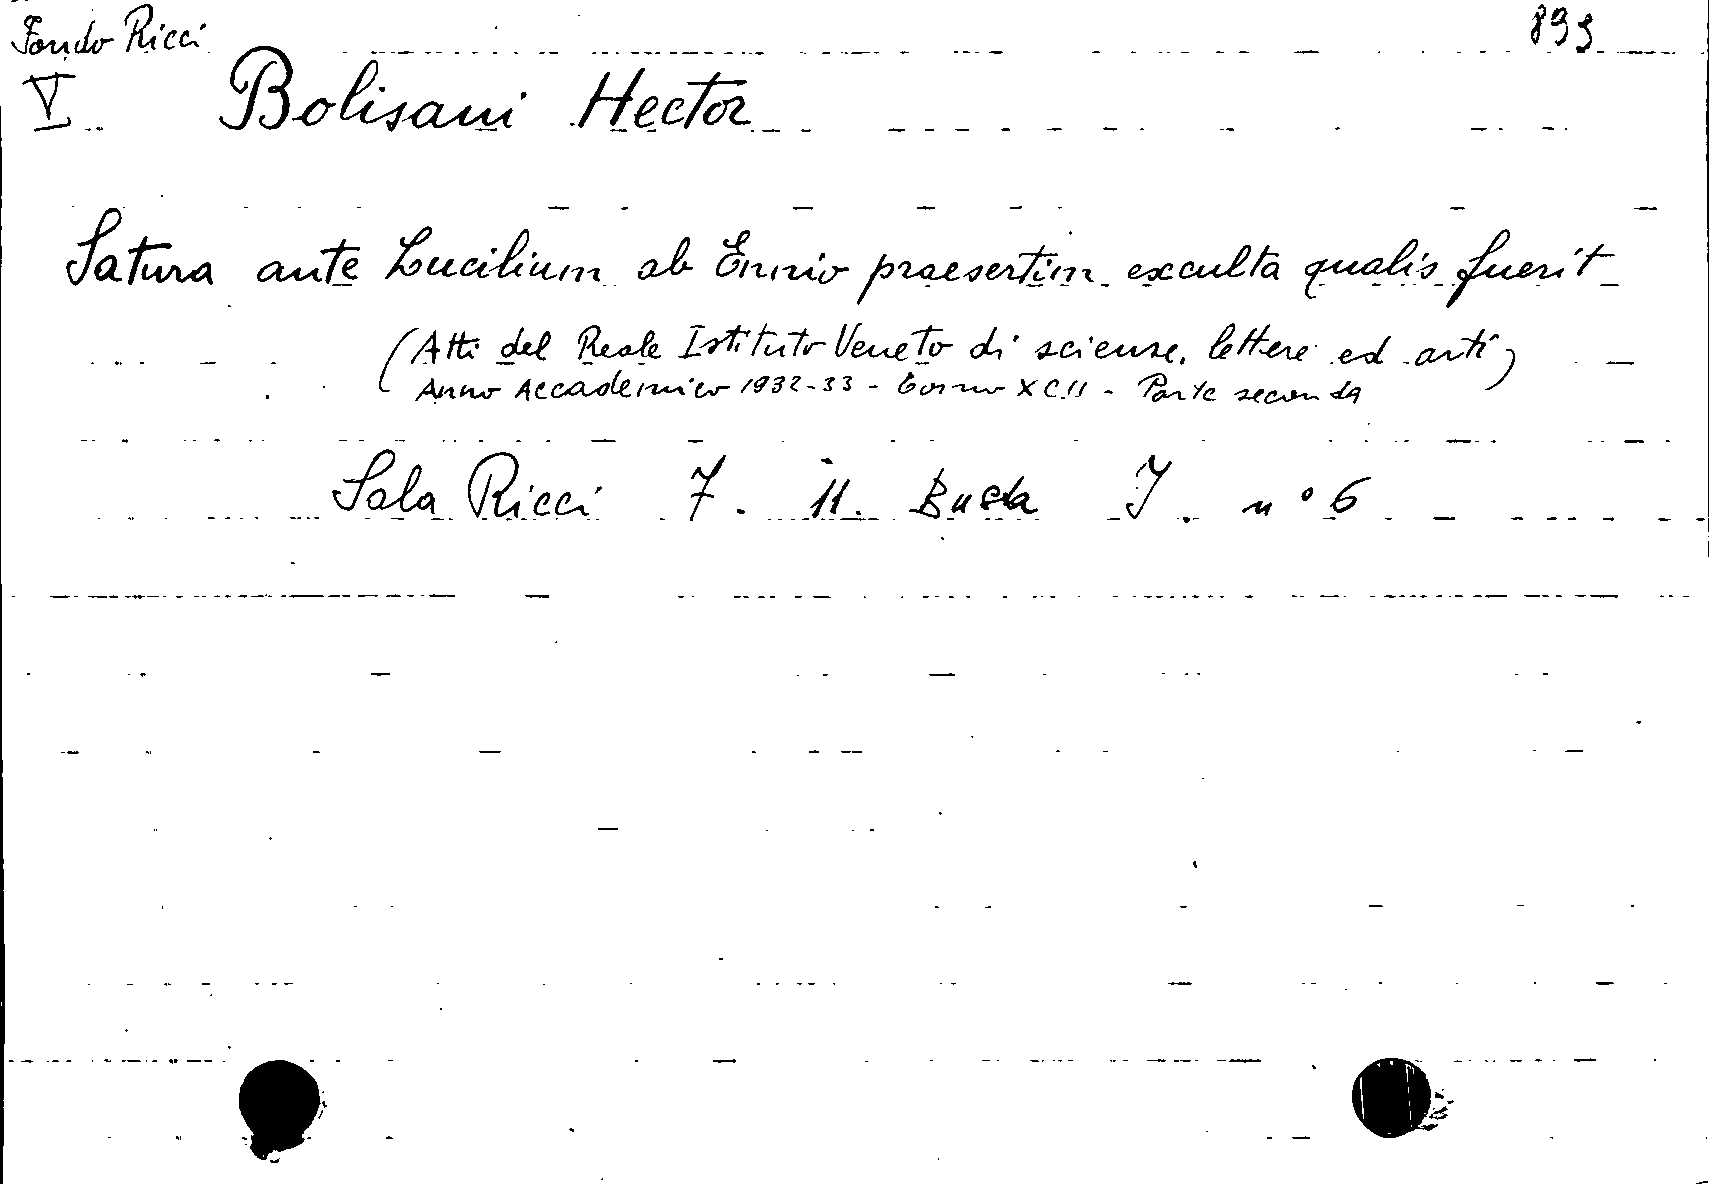 Fondo Ricci 899
V Bolisani Hector
Satura ante Lucilium ab Ennio praesertim exculta qualis fuerit
(Atti del Reale Istituto Veneto di scienze, lettere ed arti)
Anno Accademico 1932-33 - Tomo XCII - Parte seconda
Sala Ricci 7. 11. Busta I. n° 6